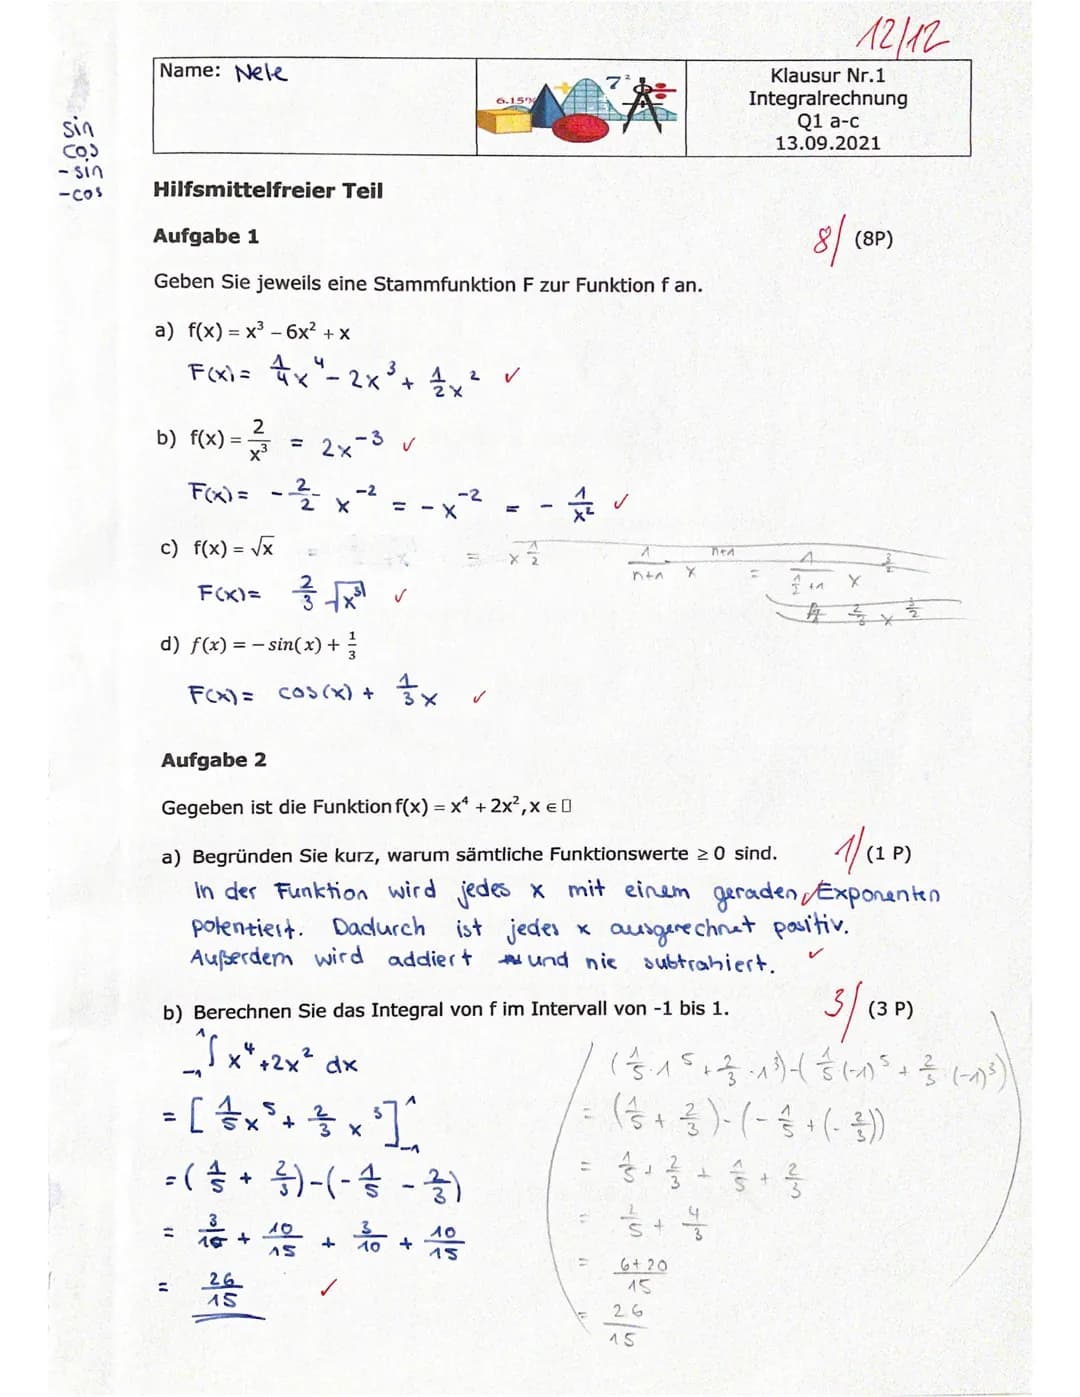 12/12
Name: Nele
6.15%
7²
Klausur Nr.1
Integralrechnung
Q1 a-c
13.09.2021
sin
cos
-sin
-cos
Hilfsmittelfreier Teil
Aufgabe 1
8/ (8P)
Geben Sie jeweils eine Stammfunktion F zur Funktion f an.
a) f(x) = x³ – 6x² + x
F(x) = 1/4 x⁴ - 2x³ + 1/2 x² ✓
b) f(x) = 2/x³ = 2x⁻³ ✓
F(x) = - 2/2 x⁻² = - x⁻² = - 1/x² ✓
c) f(x) = √x = x^1/2 1/n+1 x^n+1 = 1/(1/2 +1) x^3/2
F(x) = 2/3 √x³ ✓ 2/3 x^3/2
d) f(x) = – sin(x) + 1/3
F(x) = cos(x) + 1/3 x ✓
Aufgabe 2
Gegeben ist die Funktion f(x) = x⁴ + 2x², x ∈ ▯
a) Begründen Sie kurz, warum sämtliche Funktionswerte ≥ 0 sind. 1/ (1 P)
In der Funktion wird jedes x mit einem geraden Exponenten
potenziert. Dadurch ist jedes x ausgerechnet positiv.
Außerdem wird addiert und nie subtrahiert. ✓
b) Berechnen Sie das Integral von f im Intervall von -1 bis 1. 3/ (3 P)
₋₁∫¹ x⁴+2x² dx
= [1/5 x⁵ + 2/3 x³]¹₋₁
= (1/5 + 2/3)-(-1/5 - 2/3)
= 3/15 + 10/15 + 3/10 + 10/15
= 26/15 ✓
(1/5·1⁵ + 2/3·1³)-(1/5(-1)⁵ + 2/3(-1)³)
= (1/5 + 2/3)-(-1/5 + (-2/3))
= 1/5 + 2/3 + 1/5 + 2/3
= 2/5 + 4/3
= 6+20/15
= 26/15